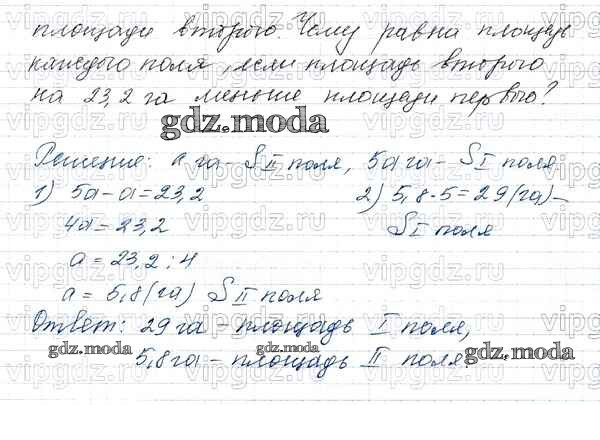 площади второго. Чему равна площадь
каждого поля, если площадь второго
на 23,2 га меньше площади первого?
gdz.moda
Решение: а га - S II поля, 5а га - S I поля
1) 5а - а = 23,2 2) 5,8·5 = 29 (га) -
4а = 23,2 S I поля
а = 23,2 : 4
а = 5,8 (га) S II поля
Ответ: 29 га - площадь I поля,
gdz.moda gdz.moda gdz.moda
5,8 га - площадь II поля.